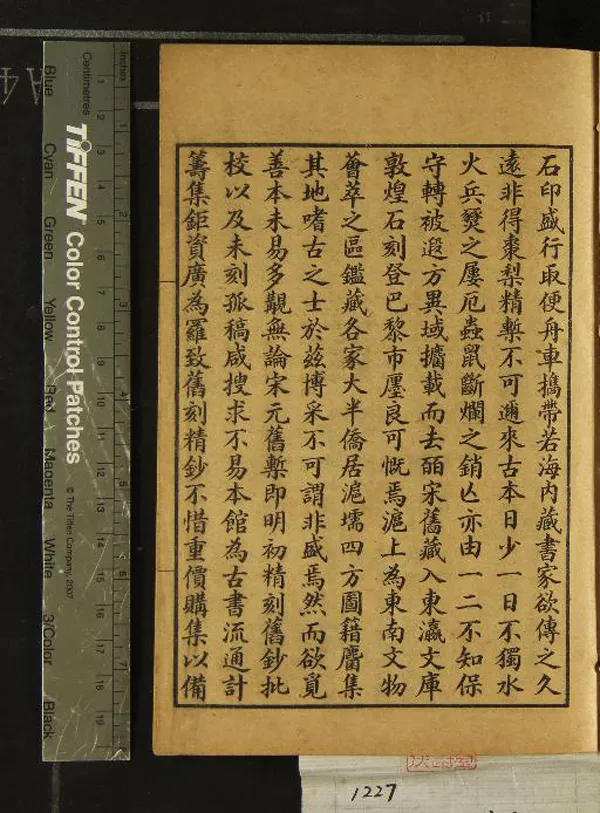 石印盛行取便舟車攜帶若海内藏書家欲傳之久
遠非得棗梨精槧不可邇來古本日少一日不獨水
火兵燹之屢厄蟲鼠斷爛之銷亾亦由一二不知保
守轉被遐方異域攟載而去皕宋舊藏入東瀛文庫
敦煌石刻登巴黎市廛良可慨焉滬上為東南文物
薈萃之區鑑藏各家大半僑居滬壖四方圖籍麕集
其地嗜古之士於兹博采不可謂非盛焉然而欲覓
善本未易多觀無論宋元舊槧即明初精刻舊鈔批
校以及未刻孤稿咸搜求不易本館為古書流通計
籌集鉅資廣為羅致舊刻精鈔不惜重價購集以備
Inches
Centimetres
TIFFEN Color Control Patches
© The Tiffen Company, 2007
Blue
Cyan
Green
Yellow
Red
Magenta
White
3/Color
Black
1 2 3 4 5 6 7 8 9 10 11 12 13 14 15 16 17 18 19
A4
1227